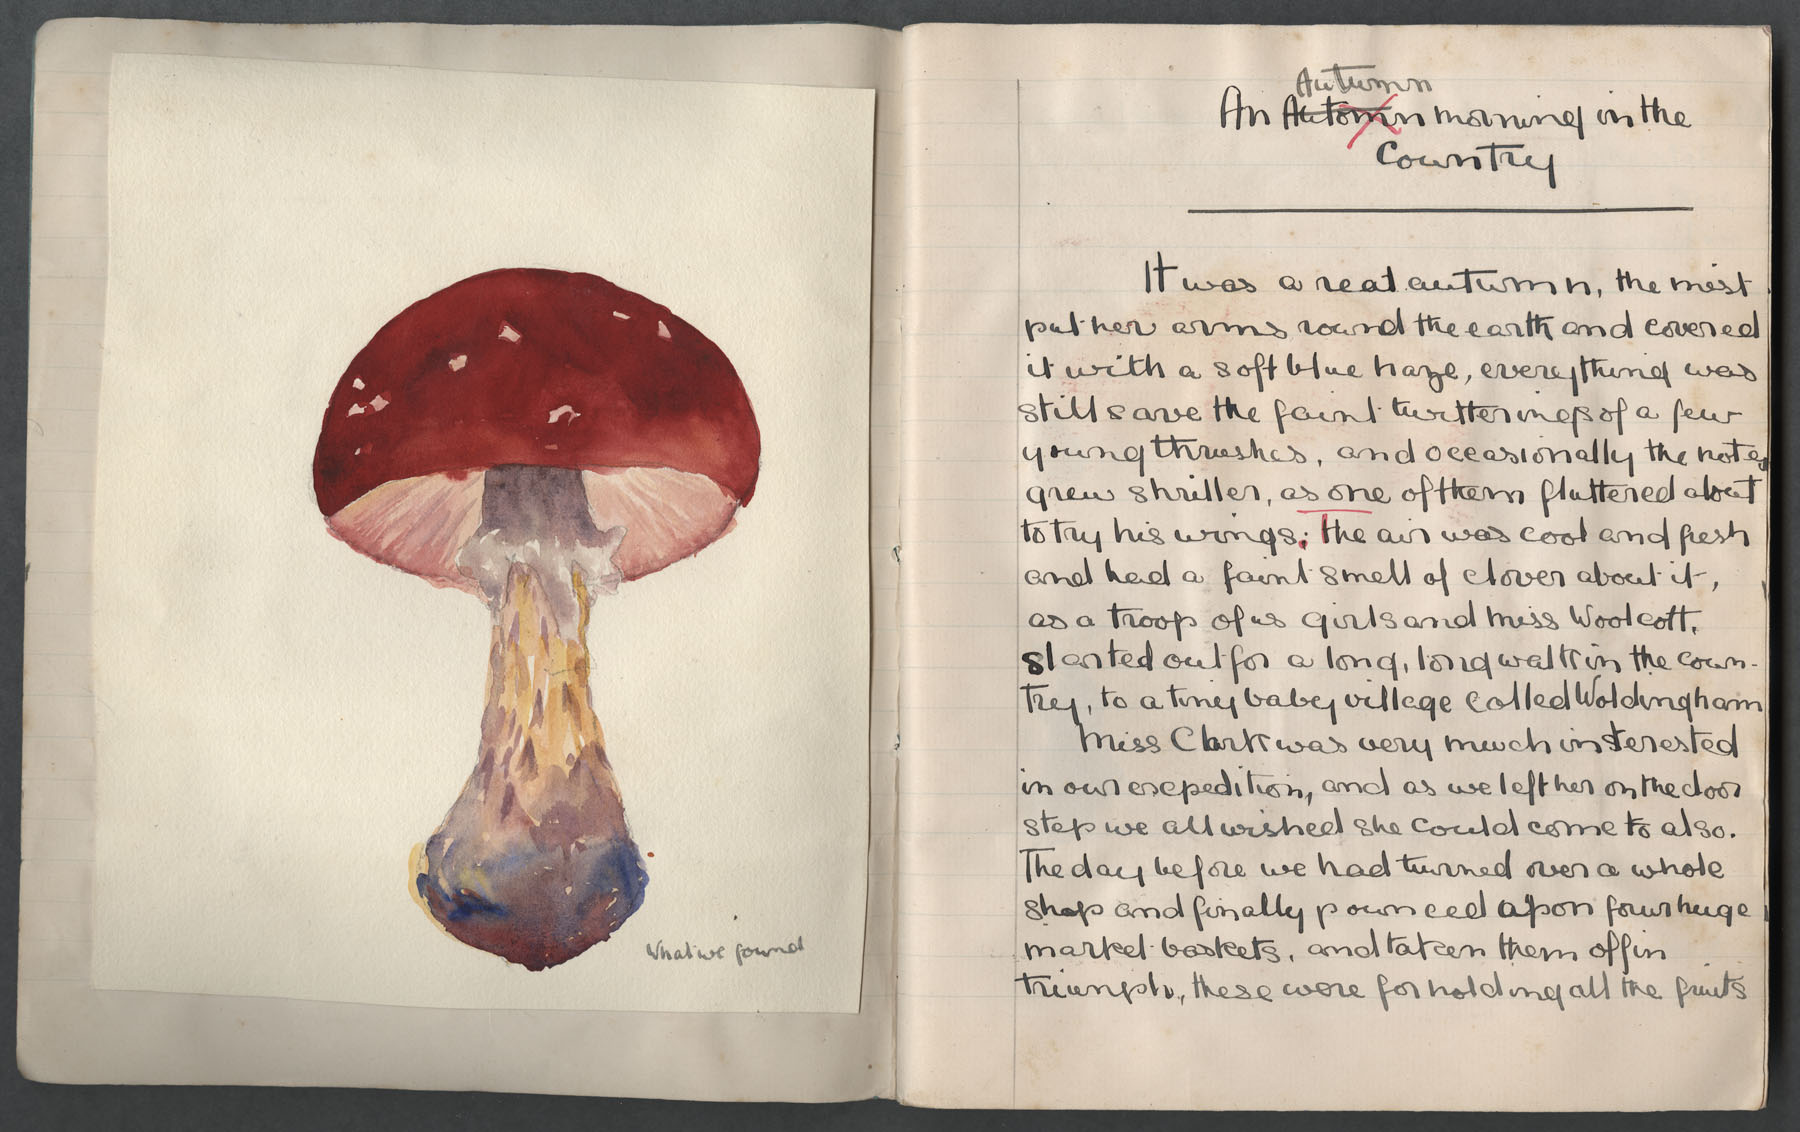 What we found
Autumn
An Automn morning in the
Country
It was a real autumn, the mist
put her arms round the earth and covered
it with a soft blue haze, everything was
still save the faint twitterings of a few
young thrushes, and occasionally the notes
grew shriller, as one of them fluttered about
to try his wings; the air was cool and fresh
and had a faint smell of clover about it,
as a troop of us girls and Miss Woolcott,
started out for a long, long walk in the coun-
try, to a tiny baby village called Woldingham
Miss Clark was very much interested
in our expedition, and as we left her on the door
step we all wished she could come to also.
The day before we had turned over a whole
shop and finally pownced apon four huge
market baskets, and taken them off in
triumph, these were for holding all the fruits